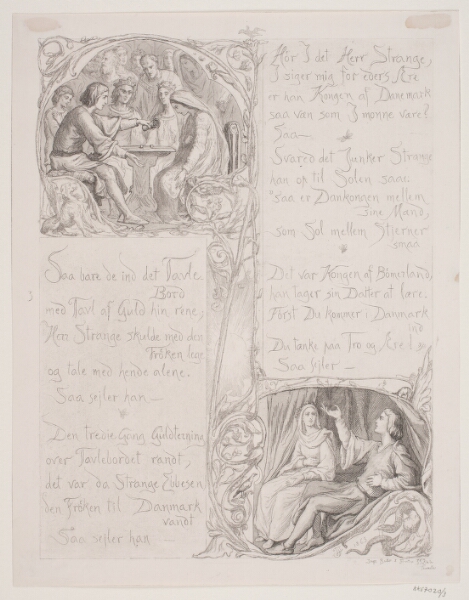 Saa bare de ind det Tavle
Bord
med Tavl af Guld hin rene,
Herr Strange skulde med den
Frøken lege
og tale med hende alene.
Saa sejler han —
Den tredie Gang Guldterning
over Tavlebordet randt,
det var da Strange Ebbesen
den Frøken til Danmark
vandt
Saa sejler han —
Hør I det Herr Strange,
I siger mig for eders Ære
er han Kongen af Danemark
saa væn som I monne være?
Saa —
Svared det Junker Strange
han op til Solen saae:
saa er Dankongen mellem
sine Mænd,
som Sol mellem Stjerner
smaa
Det var Kongen af Bömerland,
han tager sin Datter at lære.
Först Du kommer i Danmark
ind
Du tænke paa Tro og Ære!
Saa sejler —